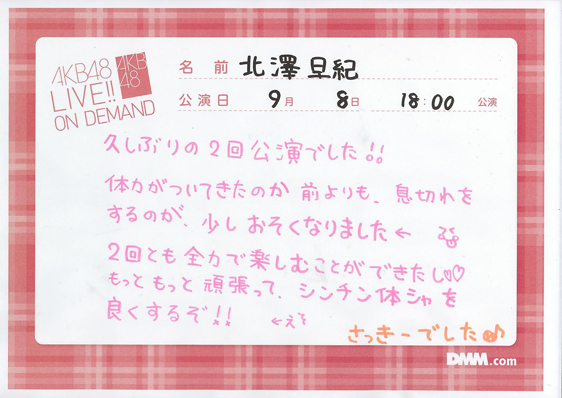 AKB48
LIVE!!
ON DEMAND
AKB
48
名前 北澤早紀
公演日 9月 8日 18:00 公演
久しぶりの2回公演でした!!
体力がついてきたのか 前よりも、息切れを
するのが、少しおそくなりました←
2回とも全力で楽しむことができたし♡♡
もっともっと頑張って、シンチン体シャを
良くするぞ!! ←えそ
さっきーでした♪
DMM.com